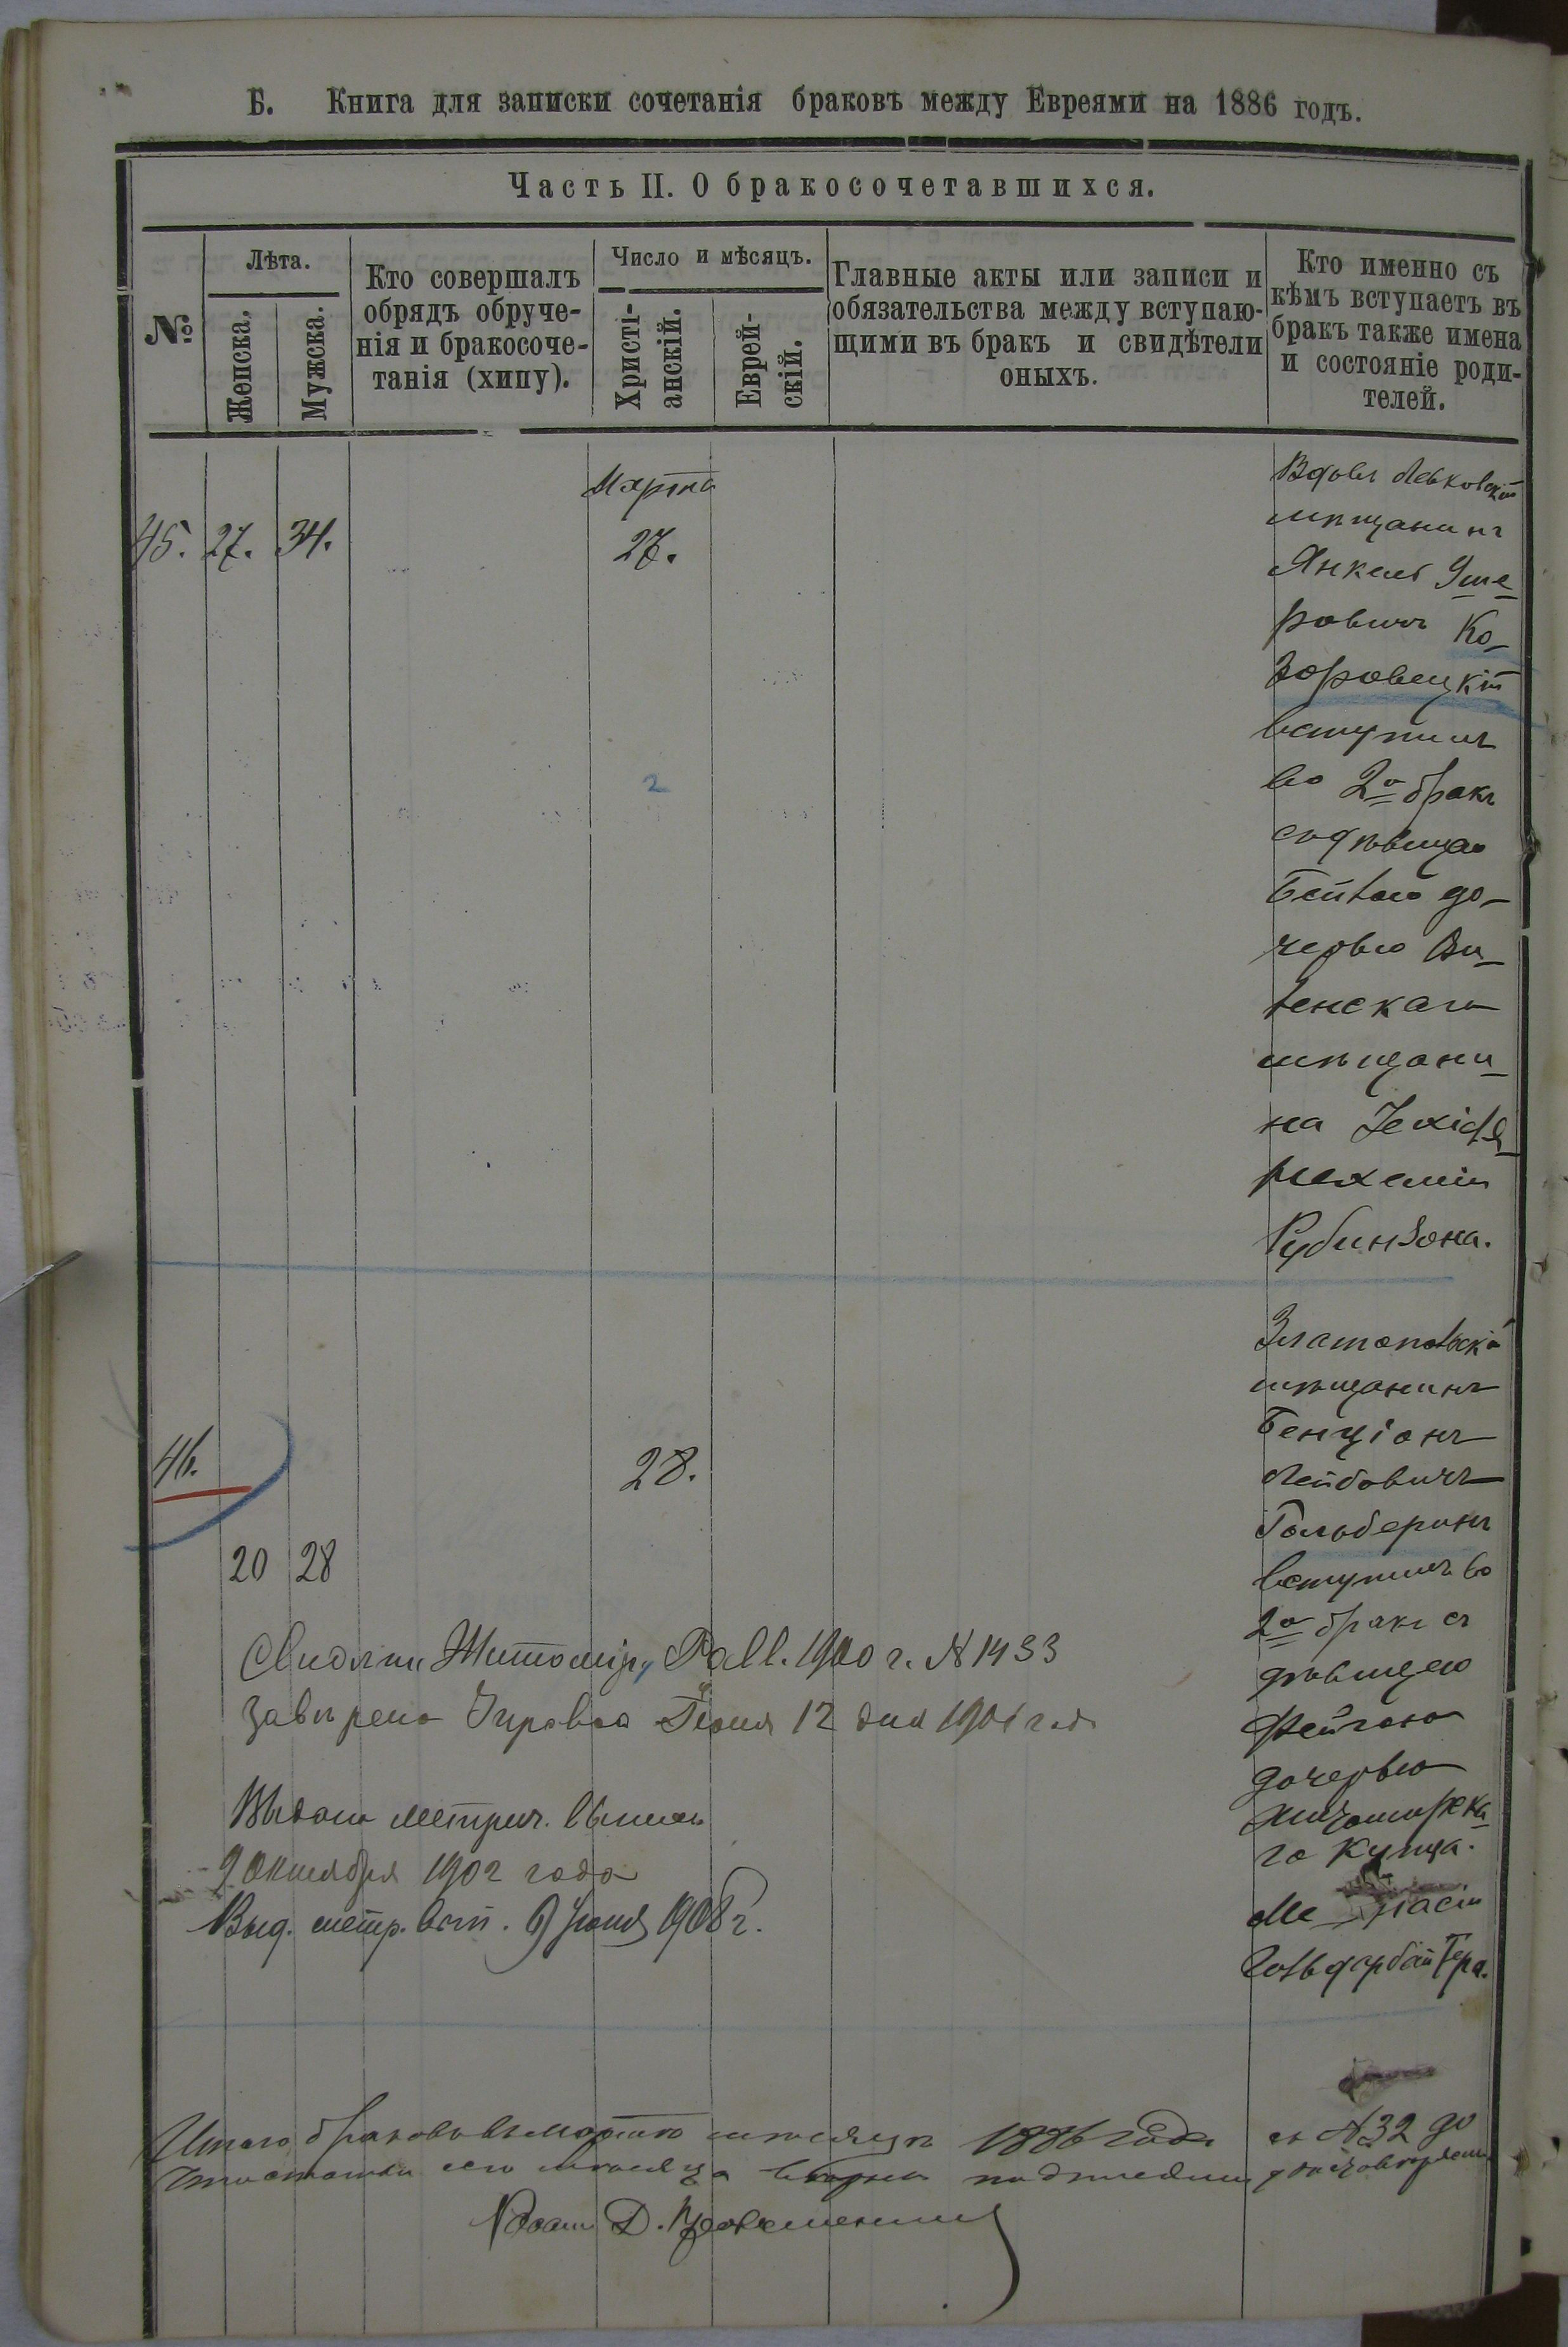 Б. Книга для записки сочетанія браковъ между Евреями на 1886 годъ.
Часть II. О бракосочетавшихся.
№
Лѣта.
Женска.
Мужска.
Кто совершалъ
обрядъ обруче-
нія и бракосоче-
танія (хипу).
Число и мѣсяцъ.
Христі-
анскій.
Еврей-
скій.
Главные акты или записи и
обязательства между вступаю-
щими въ бракъ и свидѣтели
оныхъ.
Кто именно съ
кѣмъ вступаетъ въ
бракъ также имена
и состояніе роди-
телей.
Марта
45. 27. 34. 27.
Вдовъ Левковскій
мѣщанинъ
Янкель Уше-
ровичъ Ко-
зоровецкій
вступилъ
во 2º бракъ
съ дѣвицею
Бейлею до-
черью Ви-
ленскаго
мѣщани-
на
Рубинзона.
2
46. 28.
20 28
Златопольскій
мѣщанинъ
Бенціонъ
Лейбовичъ
Гальберинъ
вступилъ во
2º бракъ съ
дѣвицею
Фейгою
дочерью
Житомірска-
го купца.
Гольдфарбай
Житомір. 1900 г. № 1433
завѣрено Іюня 12 дня 1901 года
Выдана метрич. выпись
9 Октября 1902 года
Выд. метр. вып. 9 Іюня 1908 г.
Итого браковъ въ мартѣ мѣсяцѣ 1886 года съ № 32 до
сего мѣсяца вѣрна подписями